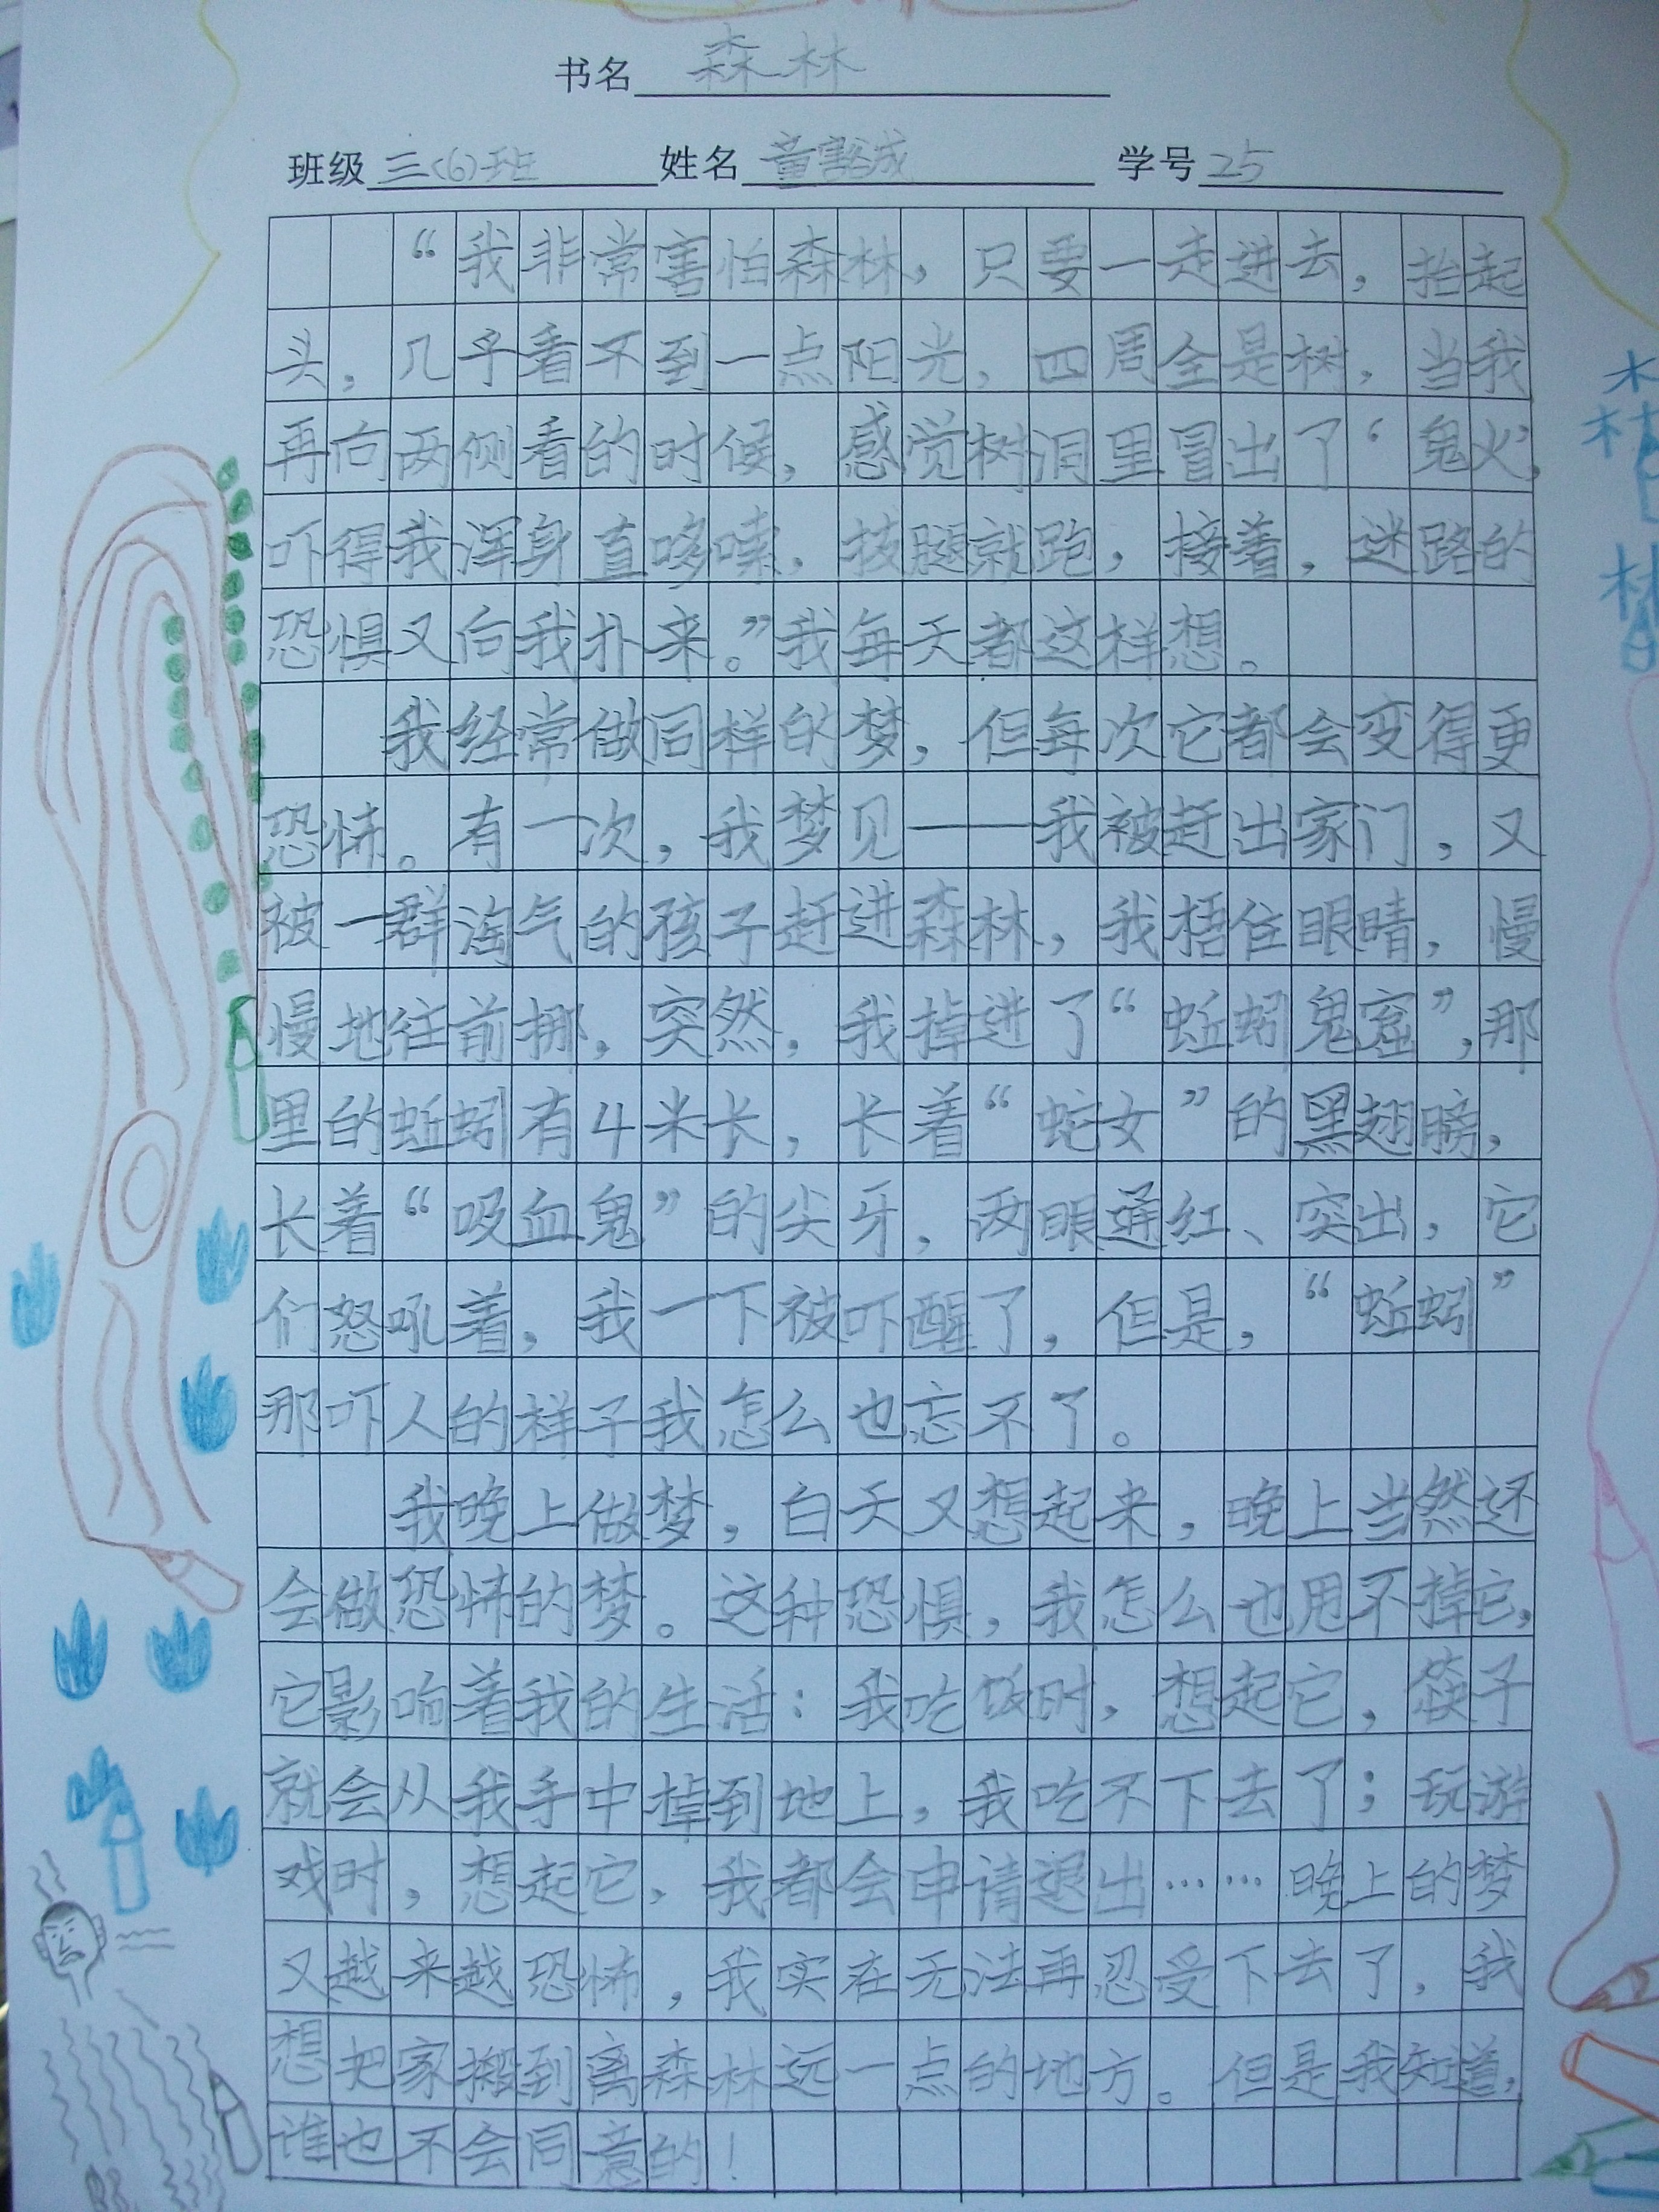 书名 森林
班级 三(6)班 姓名 董睿成 学号 25
“我非常害怕森林，只要一走进去，抬起
头，几乎看不到一点阳光，四周全是树，当我
再向两侧看的时候，感觉树洞里冒出了“鬼火”，
吓得我浑身直哆嗦，拔腿就跑，接着，迷路的
恐惧又向我扑来。”我每天都这样想。
我经常做同样的梦，但每次它都会变得更
恐怖。有一次，我梦见——我被赶出家门，又
被一群淘气的孩子赶进森林，我捂住眼睛，慢
慢地往前挪，突然，我掉进了“蚯蚓鬼窟”，那
里的蚯蚓有4米长，长着“蛇女”的黑翅膀，
长着“吸血鬼”的尖牙，两眼通红、突出，它
们怒吼着，我一下被吓醒了，但是，“蚯蚓”
那吓人的样子我怎么也忘不了。
我晚上做梦，白天又想起来，晚上当然还
会做恐怖的梦。这种恐惧，我怎么也甩不掉它，
它影响着我的生活：我吃饭时，想起它，筷子
就会从我手中掉到地上，我吃不下去了；玩游
戏时，想起它，我都会申请退出……晚上的梦
又越来越恐怖，我实在无法再忍受下去了，我
想把家搬到离森林远一点的地方。但是我知道，
谁也不会同意的！
森
林